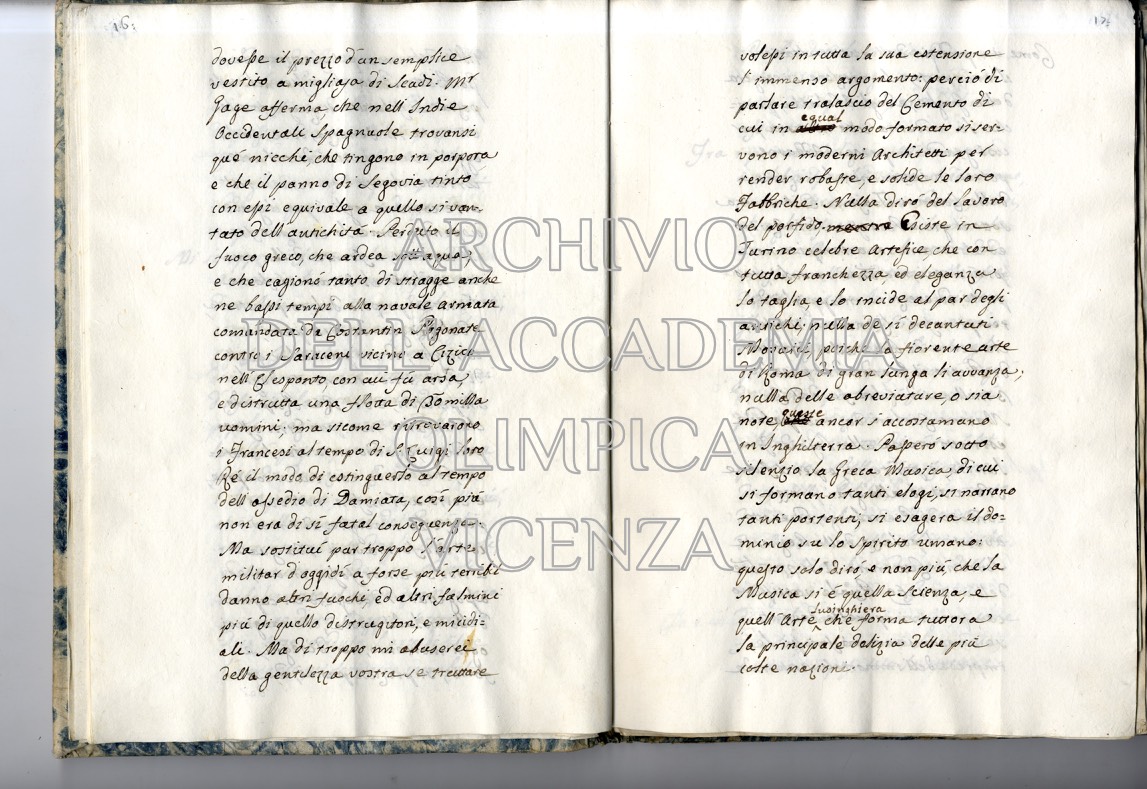 16:
dovesse il prezzo d'un semplice
vestito a migliaja di Scudi. Mr
Gage afferma che nell'Indie
Occidentali Spagnuole trovansi
que' nicchi, che tingono in porpora
e che il panno di Segovia tinto
con essi equivale a quello sì van-
tato dell'antichità. Perduto il
fuoco greco, che ardea sott'aqua,
e che cagionò tanto di stragge anche
ne bassi tempi alla navale armata
comandata da Costantin Pogonate
contro i Saraceni vicino a Cizico
nell'Elesponto, con cui fù arsa,
e distrutta una flotta di
uomini; ma sicome
i Francesi al tempo di S. Luigi loro
Ré il modo di estinguerlo al tempo
dell'assedio di Damiata, così più
non era di sì fatal conseguenza.
Ma sostituì pur troppo l'arte
militar d'oggidì a forse più terribi
danno altri fuochi, ed altri fulmini
più di quello distruggitori, e micidi-
ali. Ma di troppo mi abuserei
della gentilezza vostra se trattare
volessi in tutta la sua estensione
l'immenso argomento: perciò di
parlare tralascio del Cemento di
cui in egual modo formato si ser-
vono i moderni Architetti per
render robuste, e solide le loro
Fabbriche. Nulla dirò del lavoro
del porfido. Esiste in
Turino celebre Artefice, che con
tutta franchezza, ed eleganza
lo taglia, e lo incide al par degli
antichi; nulla de sì decantati
Mosaici, poichè la fiorente arte
di Roma di gran lunga li avvanza;
nulla delle abreviature, o sia
note, queste ancor s'accostumano
in Inghilterra. Passerò sotto
silenzio la Greca Musica, di cui
si formano tanti elogi, si narrano
tanti portenti, si esagera il do-
minio su lo Spirito umano:
questo solo dirò, e non più, che la
Musica si è quella Scienza, e
quell'Arte lusinghiera che forma tuttora
la principale delizia delle più
colte nazioni.
ARCHIVIO
DELL'ACCADEMIA
OLIMPICA
VICENZA